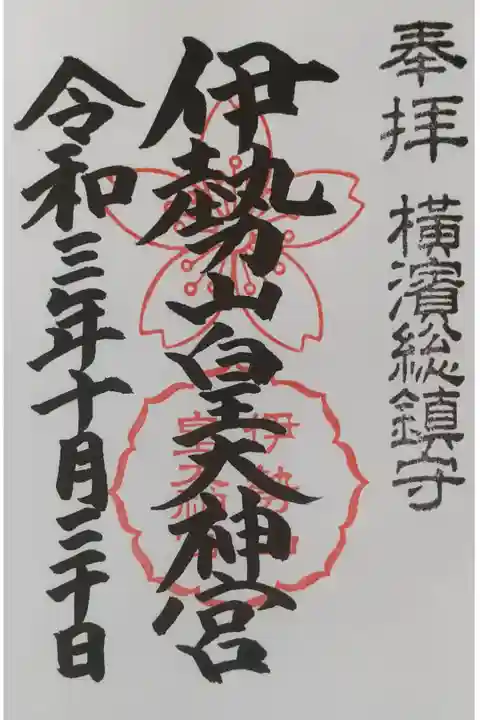 奉拝 横濱総鎮守
伊勢山皇大神宮
令和三年十月二十日
伊勢山
皇大神宮